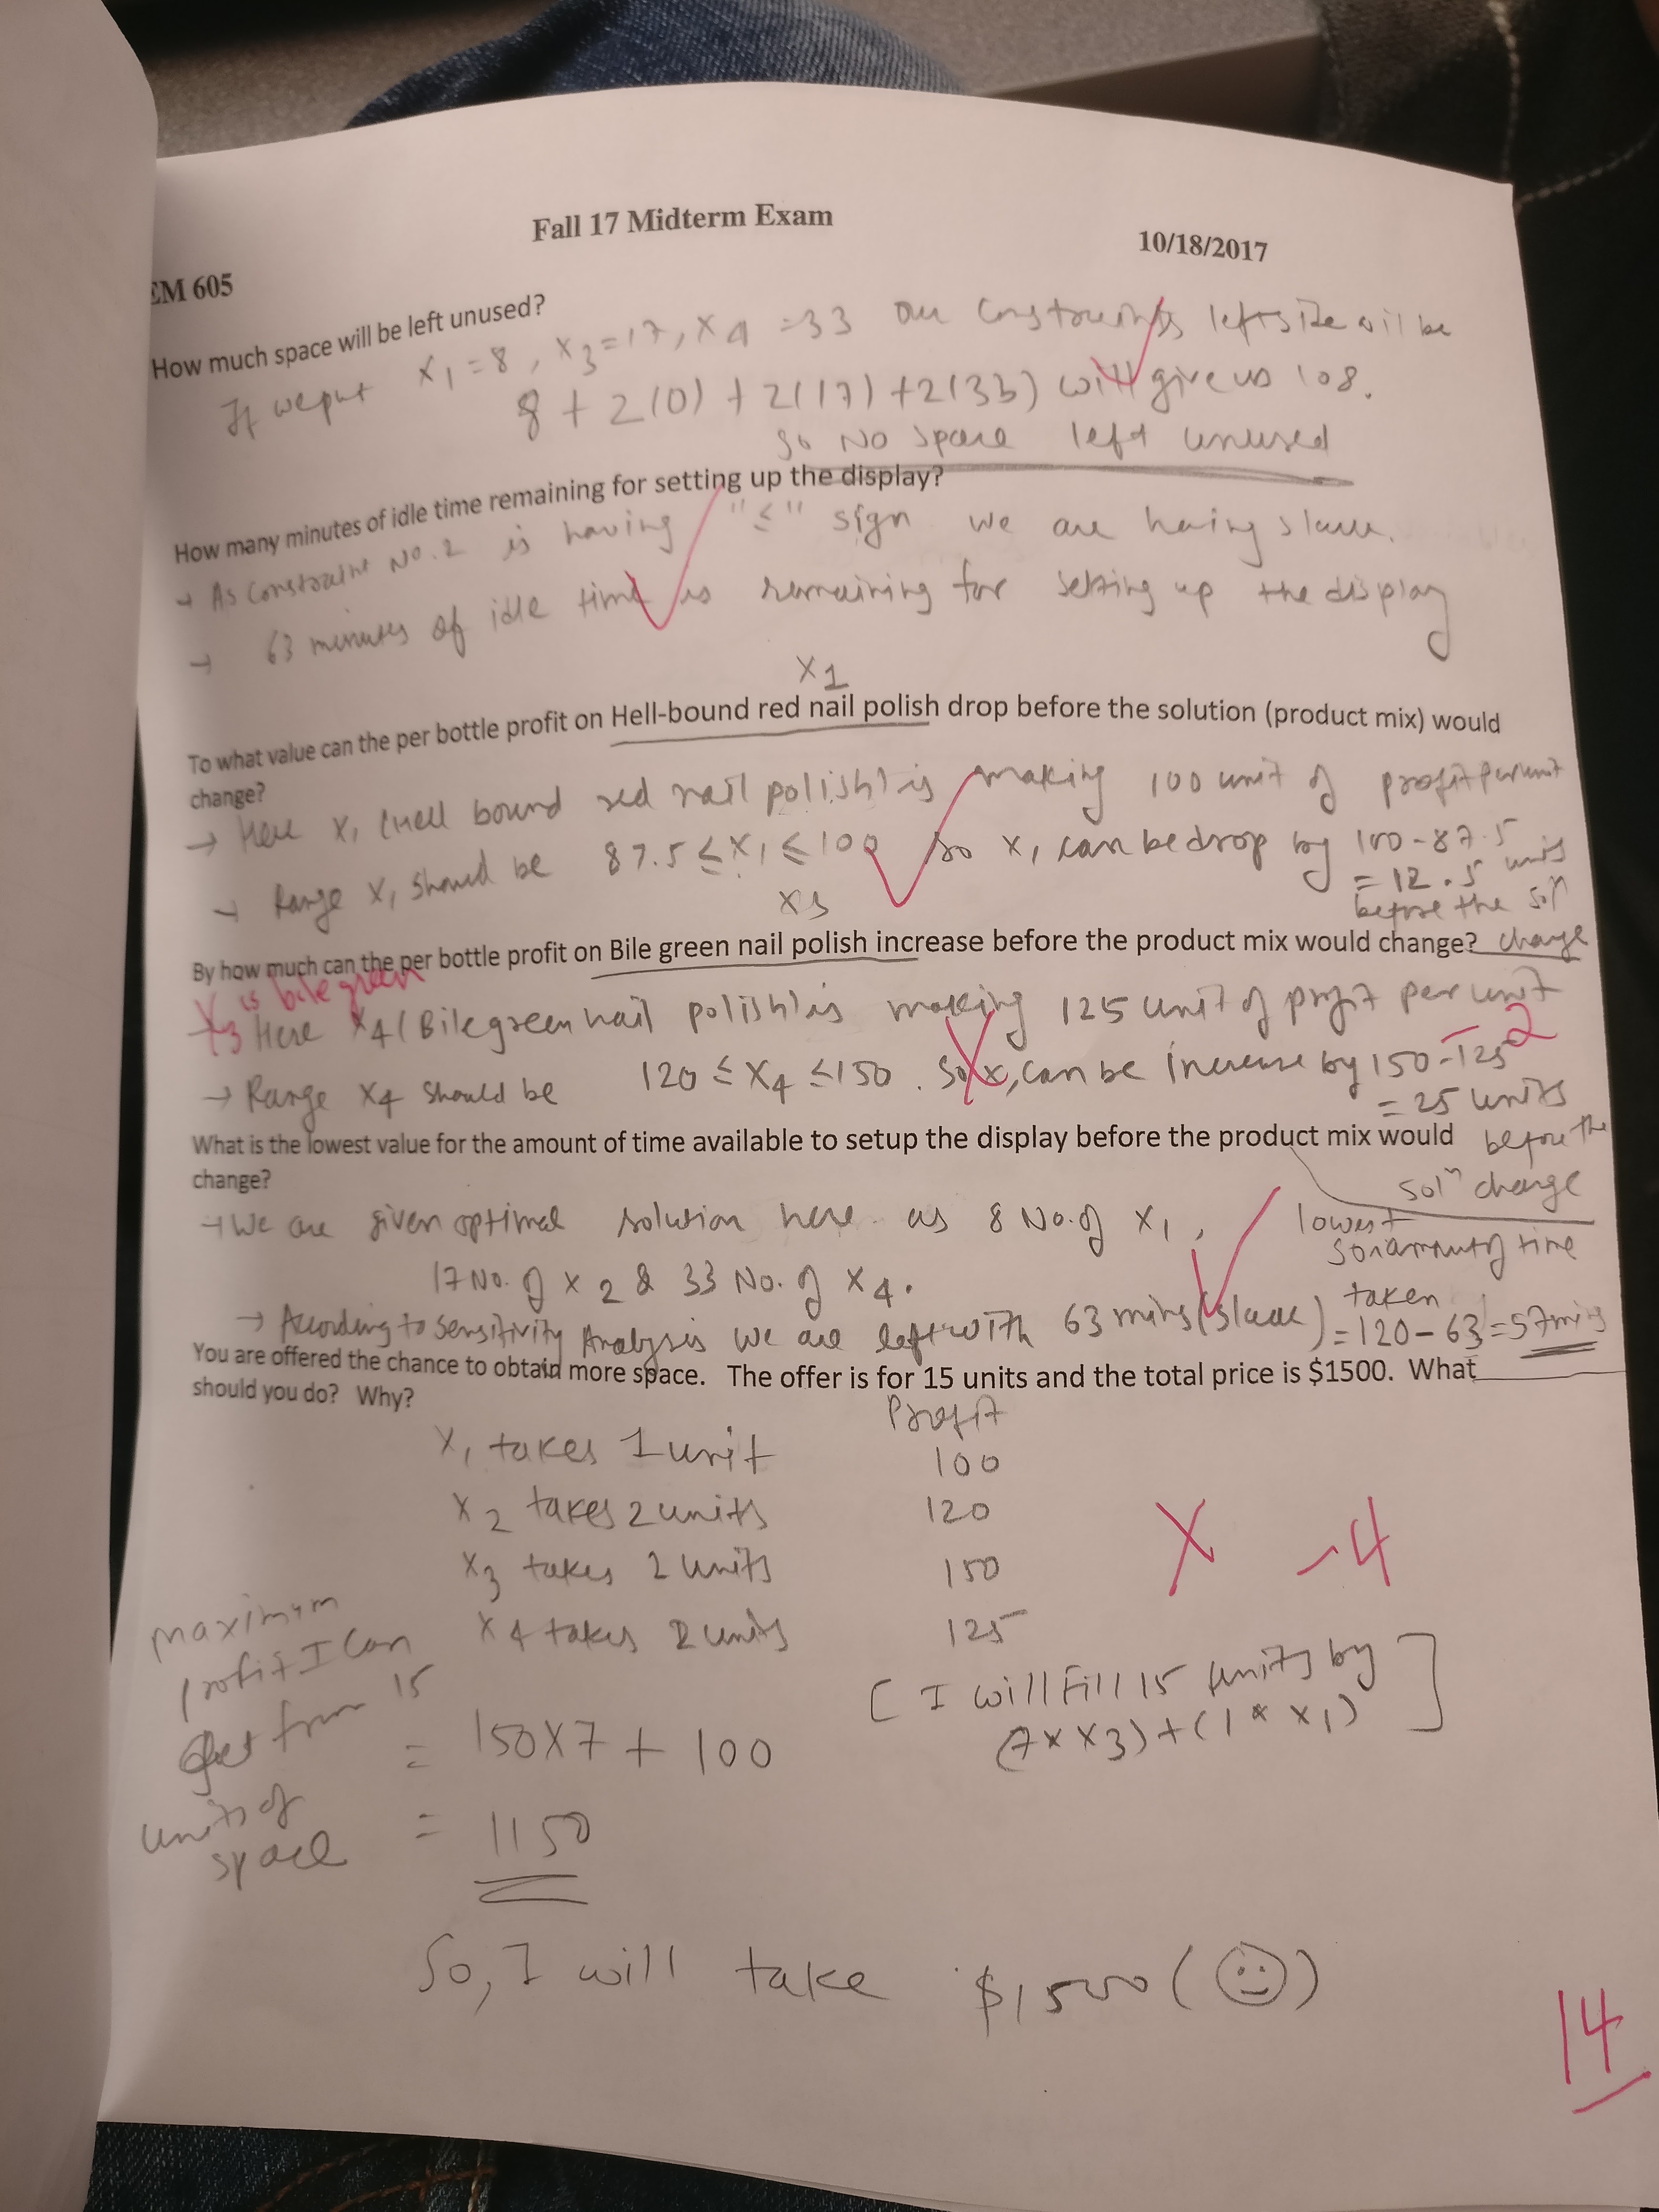 Fall 17 Midterm Exam
10/18/2017
EM 605
How much space will be left unused?
If we put x1 = 8, x3 = 17, x4 = 33 our constraints left side will be
8 + 2(0) + 2(17) + 2(33) will give us 108.
So No space left unused
How many minutes of idle time remaining for setting up the display?
→ As constraint No. 2 is having "≤" sign we are having slack.
→ 63 minutes of idle time is remaining for setting up the display
x1
To what value can the per bottle profit on Hell-bound red nail polish drop before the solution (product mix) would
change?
→ Here x1 (Hell bound red nail polish) is making 100 unit of profit per unit
→ Range x1 should be 87.5 ≤ x1 ≤ 100 so x1 can be drop by 100-87.5
= 12.5 units
before the solⁿ
change
x3
By how much can the per bottle profit on Bile green nail polish increase before the product mix would change?
x3 is bile green
Here x4 (Bile green nail polish) is making 125 unit of profit per unit
-2
→ Range x4 should be 120 ≤ x4 ≤ 150. So x, can be increase by 150-125
= 25 units
before the
solⁿ change
What is the lowest value for the amount of time available to setup the display before the product mix would
change?
→ We are given optimal solution here as 8 No. of x1,
17 No. of x2 & 33 No. of x4.
→ According to sensitivity Analysis we are left with 63 mins (slack)
lowest
so amount of time
taken
= 120 - 63 = 57 mins
You are offered the chance to obtain more space. The offer is for 15 units and the total price is $1500. What
should you do? Why?
Profit
x1 takes 1 unit 100
x2 takes 2 units 120
x3 takes 2 units 150
x4 takes 2 units 125
X -4
maximum
profit I can
get from 15
units of
space
= 150x7 + 100
= 1150
[I will Fill 15 units by
(7 * x3) + (1 * x1)]
So, I will take $1500 (☺)
14